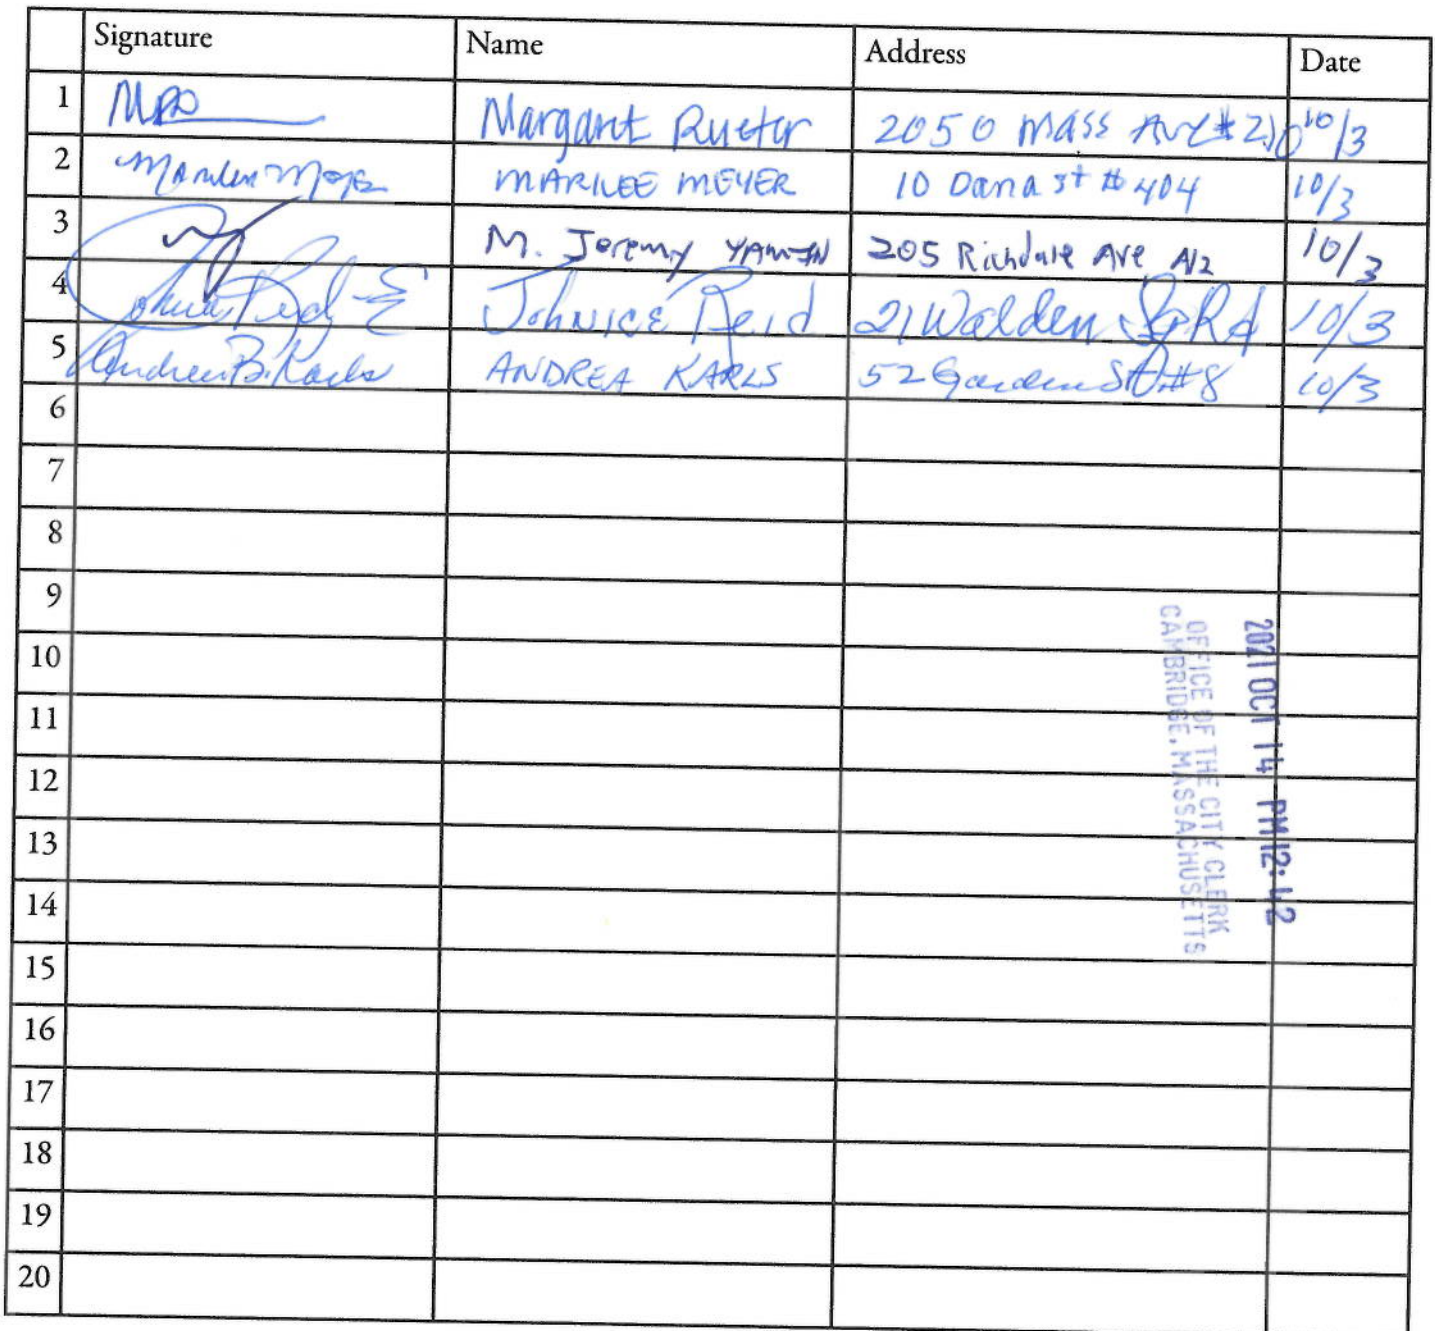 Signature Name Address Date
1 Margaret Rueter 2050 Mass Ave #210 10/3
2 Marilee Meyer MARILEE MEYER 10 Dana st # 404 10/3
3 M. Jeremy YAMIN 205 Richdale Ave A12 10/3
4 Johnice Reid 21 Walden Sq Rd 10/3
5 Andrea B. Karls ANDREA KARLS 52 Garden St #8 10/3
6
7
8
9
10
11
12
13
14
15
16
17
18
19
20
2021 OCT 14 PM 12:42
OFFICE OF THE CITY CLERK
CAMBRIDGE, MASSACHUSETTS